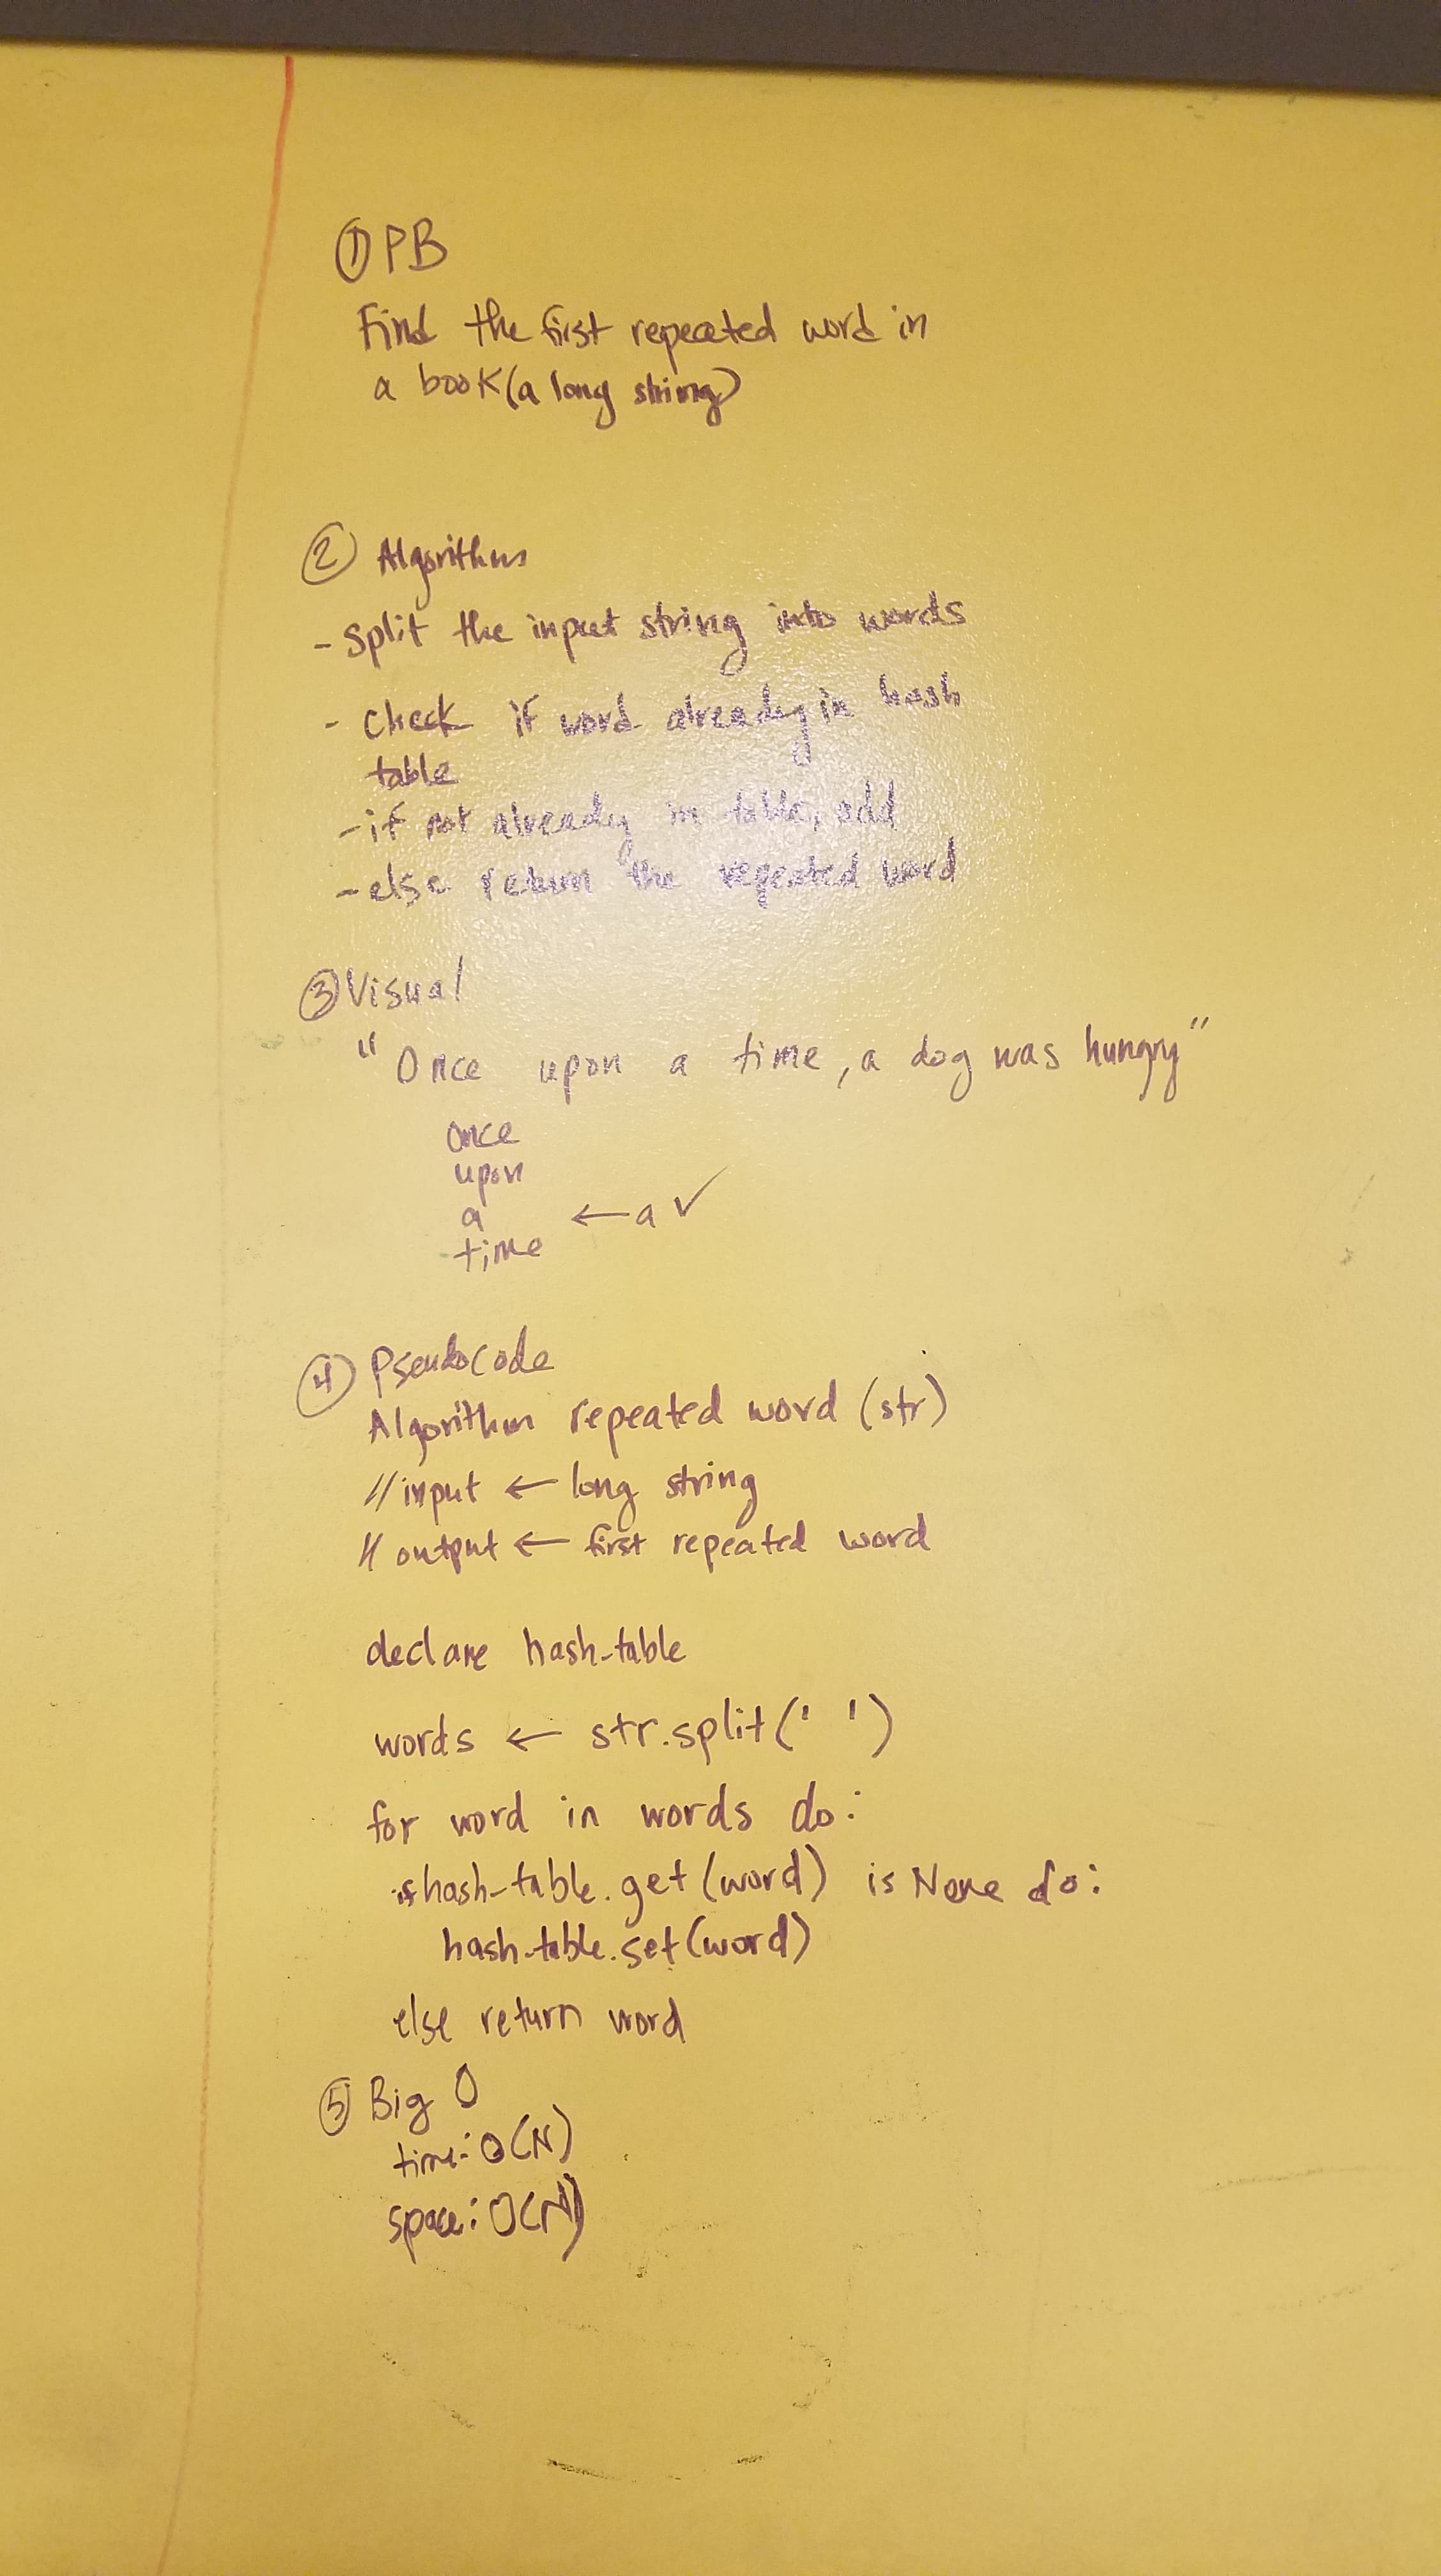 ① PB
Find the first repeated word in
a book (a long string)
② Algorithm
- Split the input string into words
- Check if word already in hash
table
- if not already in table, add
- else return the repeated word
③ Visual
"Once upon a time, a dog was hungry"
once
upon
a ← a ✓
time
④ Pseudocode
Algorithm repeated word (str)
// input ← long string
// output ← first repeated word
declare hash-table
words ← str.split(' ')
for word in words do:
if hash-table.get(word) is None do:
hash-table.set(word)
else return word
⑤ Big O
time: O(N)
space: O(N)